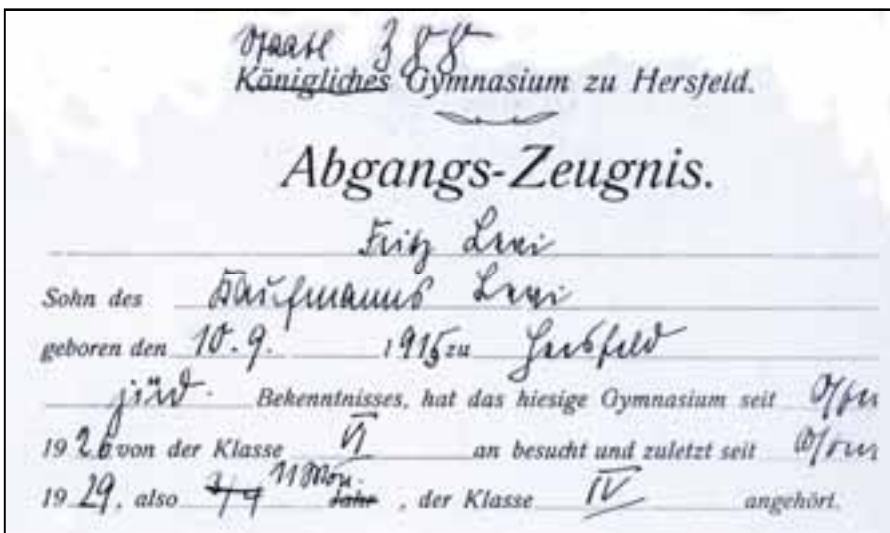 Staatl
Königliches Gymnasium zu Hersfeld.
Abgangs-Zeugnis.
Fritz Levi
Sohn des Kaufmanns Levi
geboren den 10.9. 1915 zu Hersfeld
jüd. Bekenntnisses, hat das hiesige Gymnasium seit Ostern
1926 von der Klasse VI an besucht und zuletzt seit Ostern
1929, also 11 Mon. Jahr, der Klasse IV angehört.